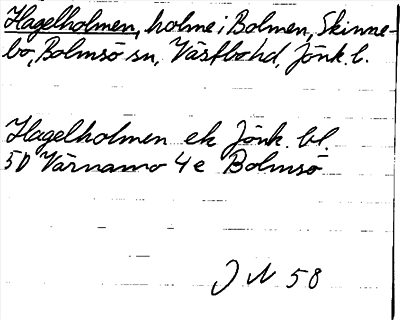 Hagelholmen, holme i Bolmen, Skinne-
bo, Bolmsö sn, Västbo hd, Jönk. l.
Hagelholmen ek Jönk. bl.
5D Värnamo 4e Bolmsö
J N 58